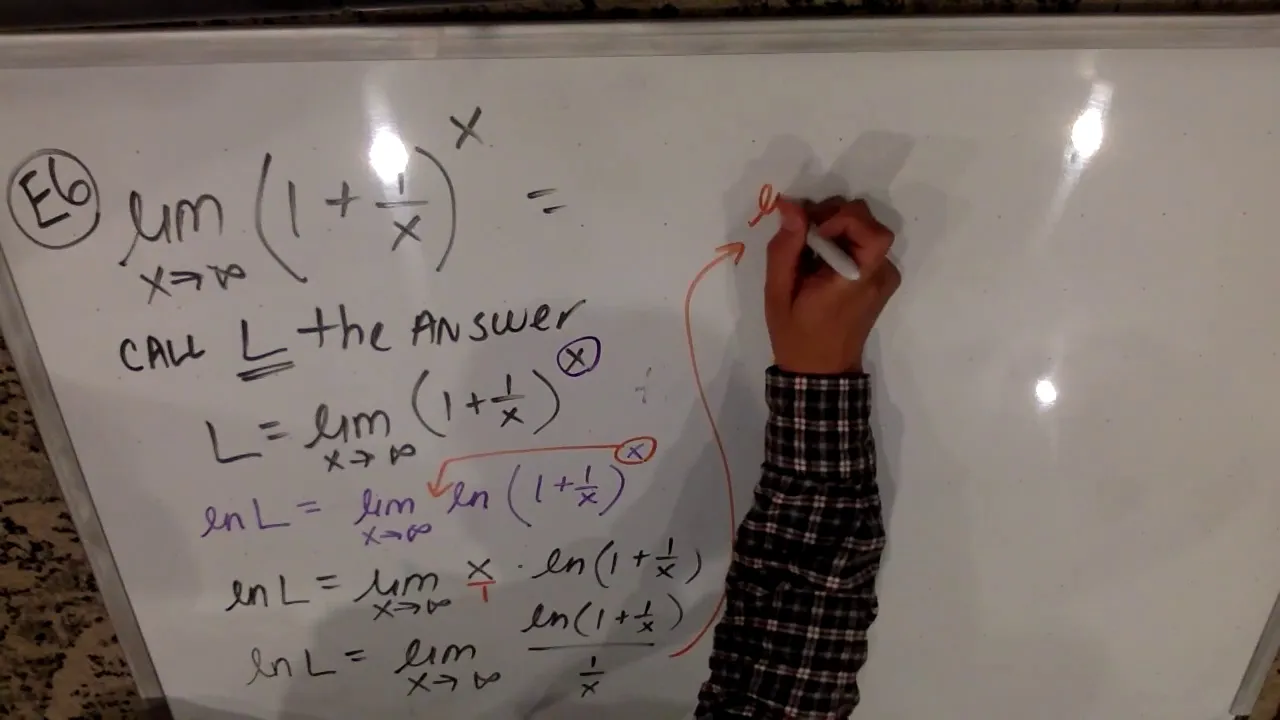 E6 lim x→∞ (1 + 1/x)^x =
CALL L the ANSWER
L = lim x→∞ (1 + 1/x)^x
ln L = lim x→∞ ln (1 + 1/x)^x
ln L = lim x→∞ x/1 · ln(1 + 1/x)
ln L = lim x→∞ ln(1 + 1/x) / 1/x